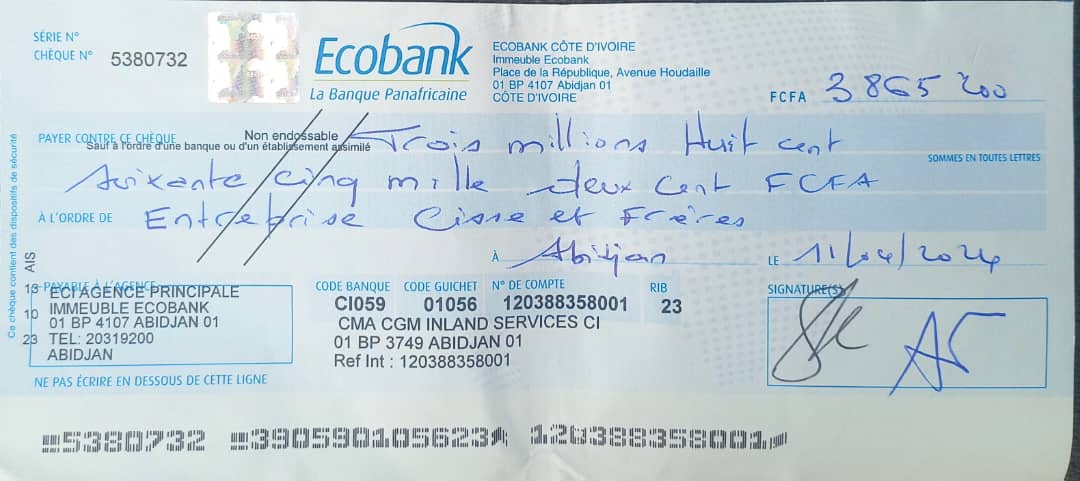 SÉRIE N°
CHÈQUE N° 5380732
Ecobank
La Banque Panafricaine
ECOBANK CÔTE D'IVOIRE
Immeuble Ecobank
Place de la République, Avenue Houdaille
01 BP 4107 Abidjan 01
CÔTE D'IVOIRE
FCFA 3 865 200
PAYER CONTRE CE CHÈQUE
Non endossable
Sauf à l'ordre d'une banque ou d'un établissement assimilé
Trois millions Huit cent
SOMMES EN TOUTES LETTRES
Soixante cinq mille deux cent FCFA
À L'ORDRE DE Entreprise Cisse et Frères
À Abidjan LE 11/04/2024
Ce chèque contient des dispositifs de sécurité
AIS
13
10
23
PAYABLE À L'AGENCE
ECI AGENCE PRINCIPALE
IMMEUBLE ECOBANK
01 BP 4107 ABIDJAN 01
TEL: 20319200
ABIDJAN
CODE BANQUE CODE GUICHET N° DE COMPTE RIB
CI059 01056 120388358001 23
CMA CGM INLAND SERVICES CI
01 BP 3749 ABIDJAN 01
Ref Int : 120388358001
SIGNATURE(S)
NE PAS ÉCRIRE EN DESSOUS DE CETTE LIGNE
5380732 390590105623 120388358001